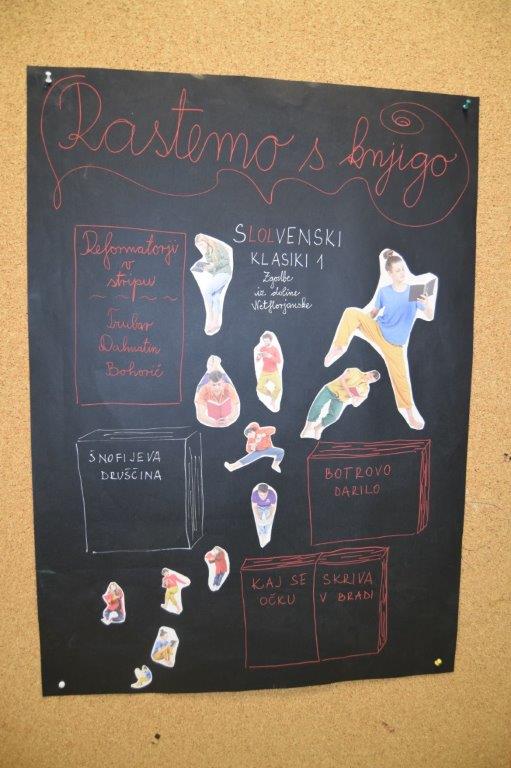 Rastemo s knjigo
Reformatorji
v
stripu
Trubar
Dalmatin
Bohorič
SLOLVENSKI
KLASIKI 1
Zgodbe
iz doline
Vietflorjanske
ŠNOFIJEVA
DRUŠČINA
BOTROVO
DARILO
KAJ SE
OČKU
SKRIVA
V BRADI